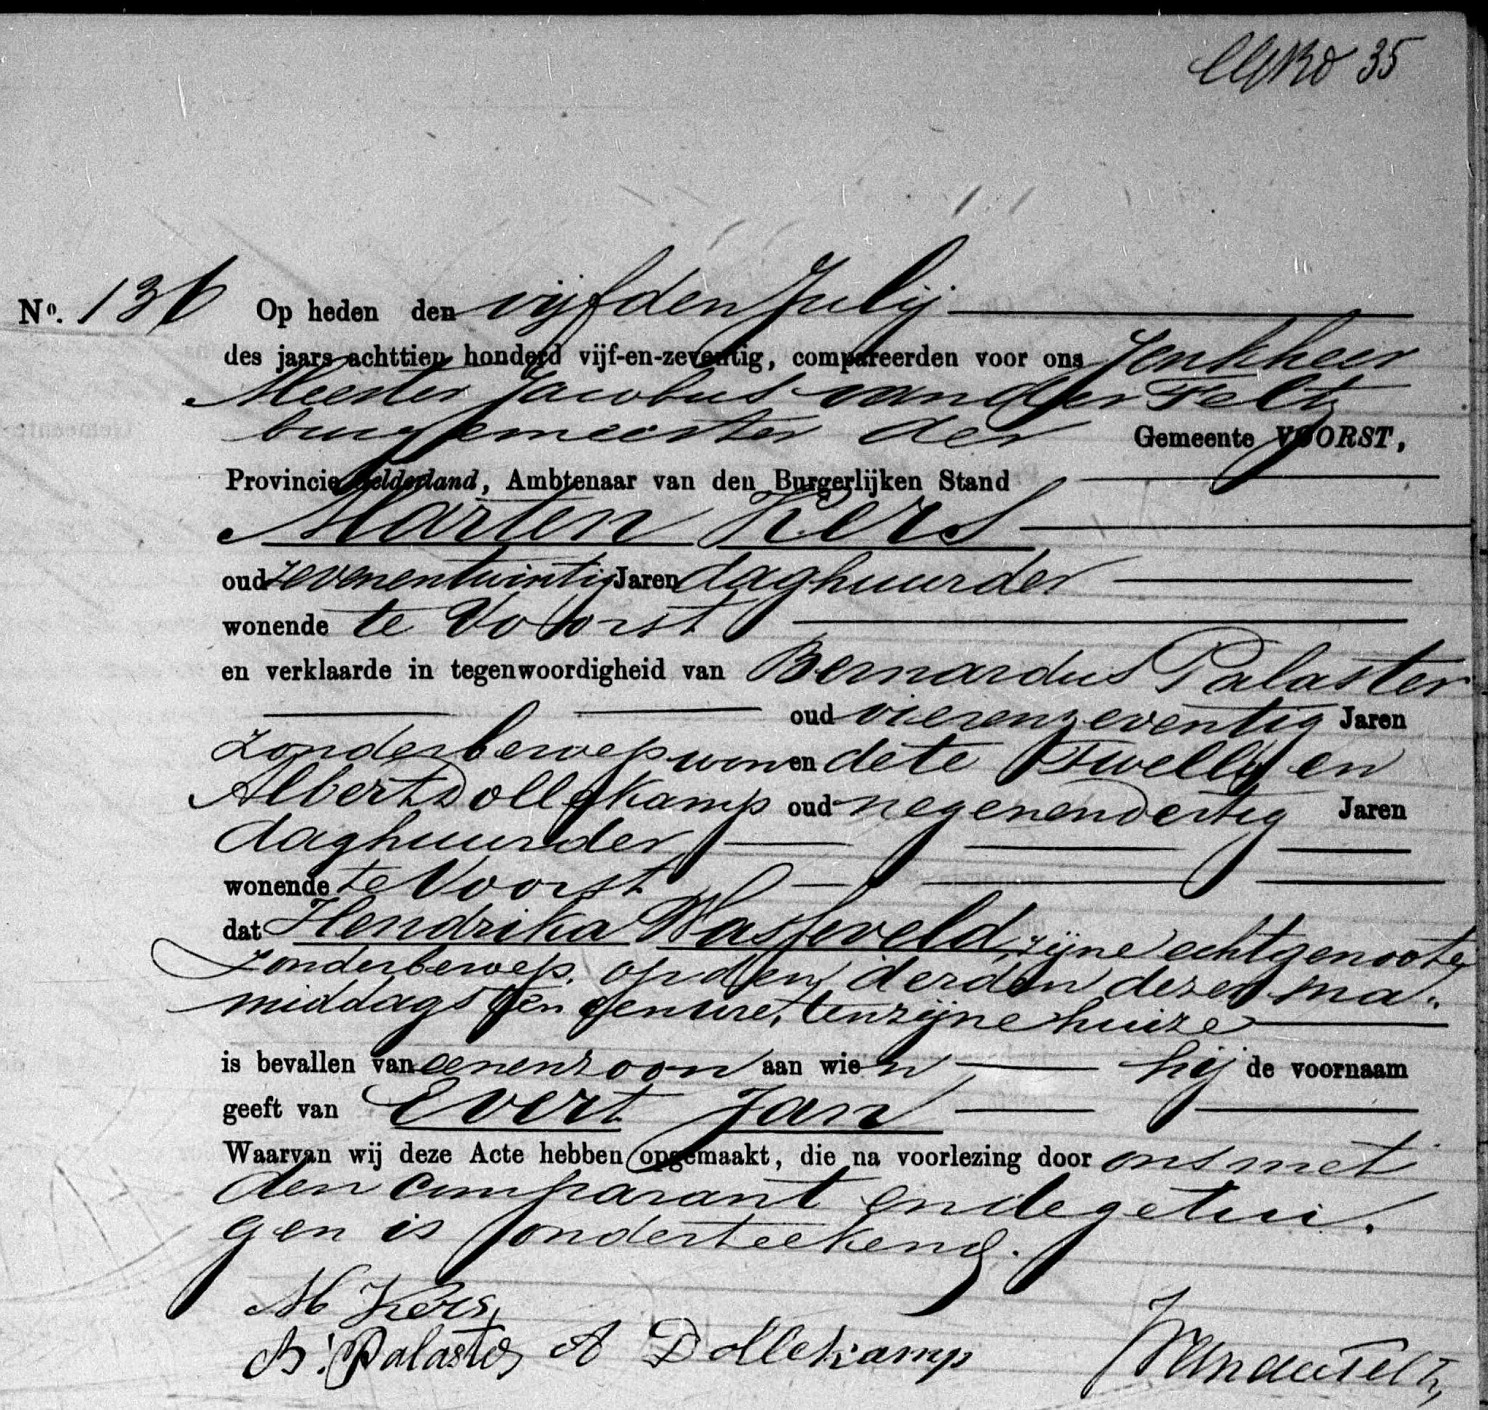 35
No. 136 Op heden den vijfden Julij
des jaars achttien honderd vijf-en-zeventig, compareerden voor ons Jonkheer
Meester Jacobus van der Feltz
burgemeester der Gemeente VOORST,
Provincie Gelderland, Ambtenaar van den Burgerlijken Stand
Marten Kers
oud zevenentwintig Jaren daghuurder
wonende te Voorst
en verklaarde in tegenwoordigheid van Bernardus Palaster
oud vierenzeventig Jaren
zonder beroep wonende te Twello en
Albert Dollekamp oud negenendertig Jaren
daghuurder
wonende te Voorst
dat Hendrika Wasseveld, zijne echtgenoote
zonder beroep op den derden dezer, na-
middags ten ure, ten zijne huize
is bevallen van eenen zoon aan wien hij de voornaam
geeft van Evert Jan
Waarvan wij deze Acte hebben opgemaakt, die na voorlezing door ons met
den comparant en de getui-
gen is onderteekend.
M Kers
B: Palaster A Dollekamp JvanderFeltz